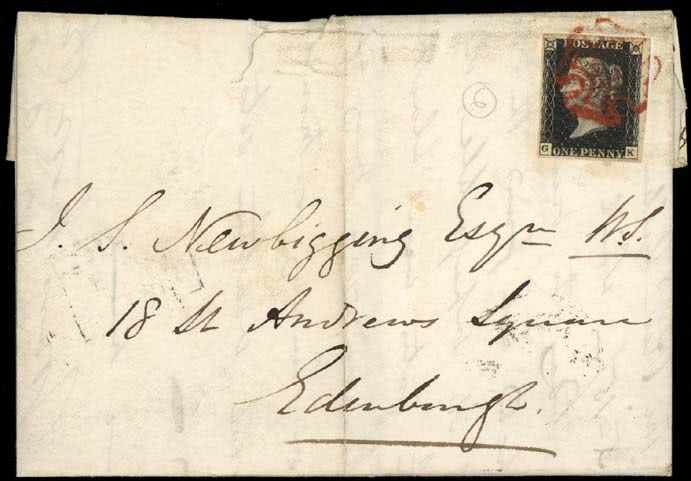 POSTAGE
G ONE PENNY K
6
J. S. Newbigging Esqre W.S.
18 St Andrews Square
Edinburgh.